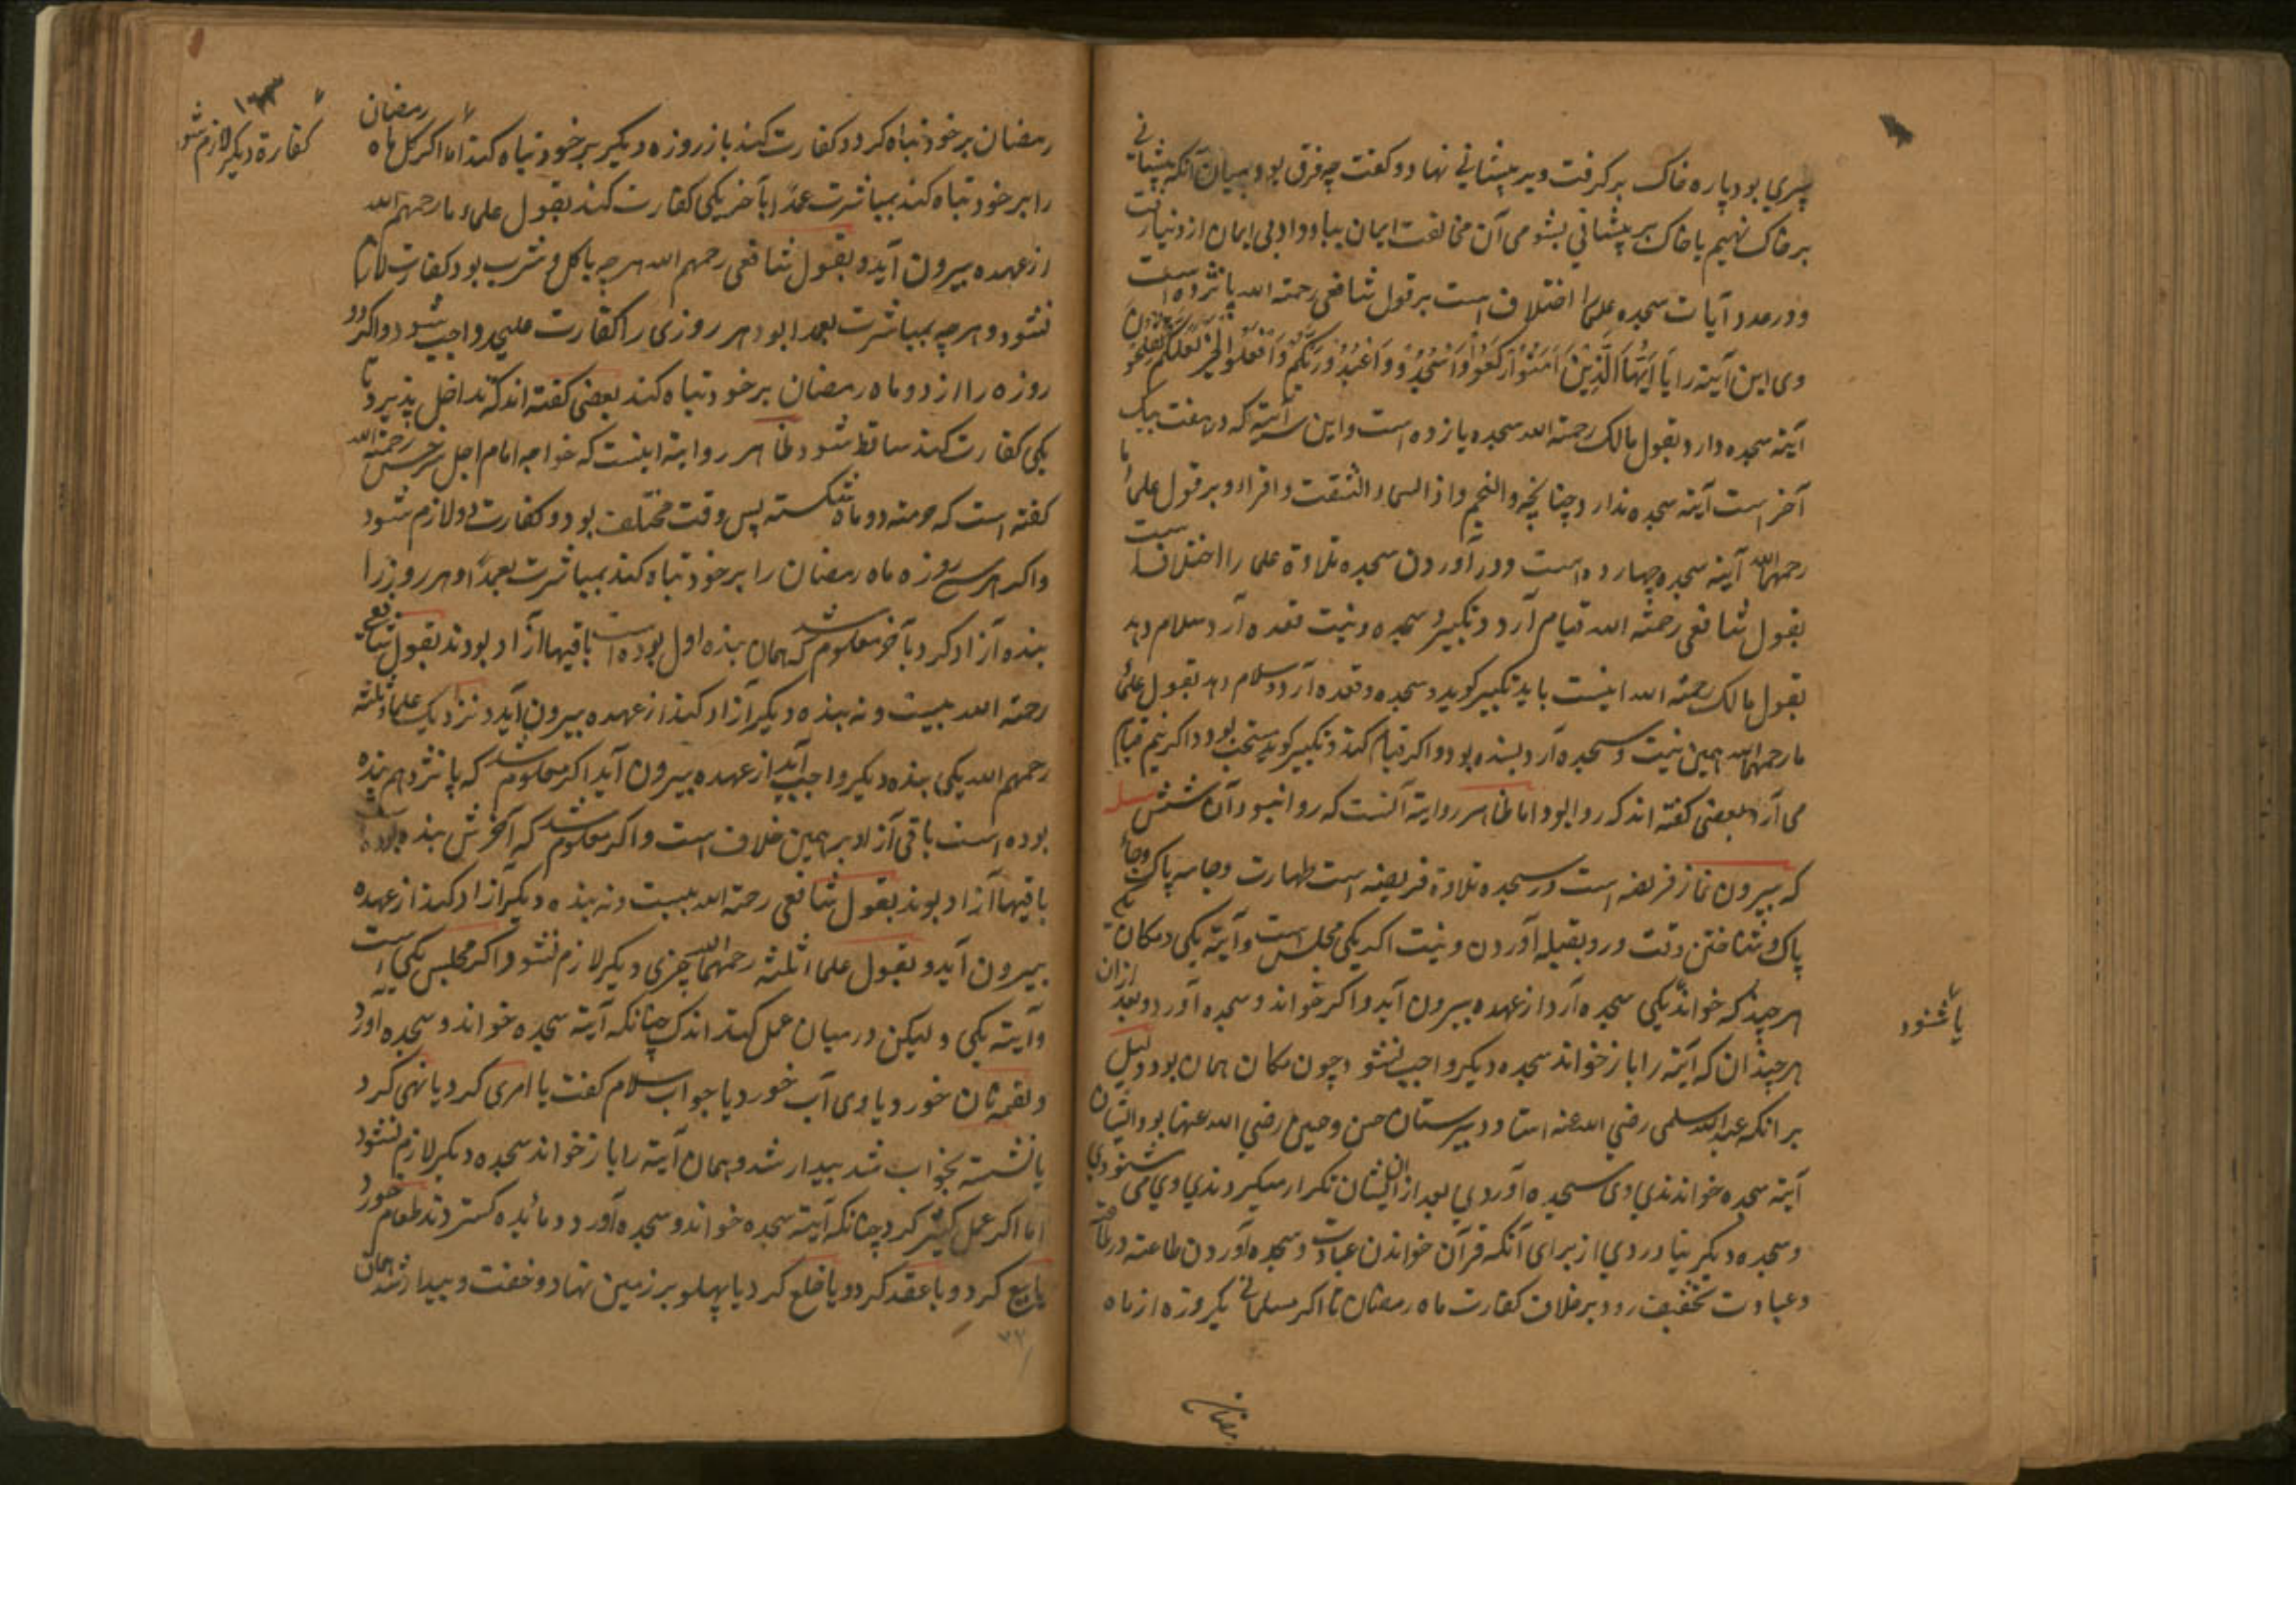 پیری بود پاره خاک برگرفت و بر پیشانی نهاد و گفت چه فرق بود میان آنکه پیشانی
بر خاک نهیم یا خاک بر پیشانی بشومی آن مخالفت ایمان بباد داد بی ایمان از دنیا رفت
و در عدد آیات سجده علما را اختلاف است بر قول شافعی رحمة الله پانزده است
وی این آیة را یَا أَیُّهَا الَّذِینَ آمَنُوا ارْکَعُوا وَاسْجُدُوا وَاعْبُدُوا رَبَّکُمْ وَافْعَلُوا الْخَیْرَ لَعَلَّکُمْ تُفْلِحُونَ
آیة سجده دارد و بقول مالک رحمة الله سجده یازده است و این سه آیة که در هفت یک
آخر است آیة سجده ندارد چنانچه والنجم واذا السماء انشقت واقرا و بر قول علماء ما
رحمهم الله آیة سجده چهارده است و در آوردن سجده تلاوة علما را اختلاف است
بقول شافعی رحمة الله قیام آرد و تکبیر و سجده و نیت قعده آرد سلام دهد
بقول مالک رحمة الله اینست باید تکبیر گوید و سجده و قعده آرد و سلام دهد بقول علماء
ما رحمهم الله همین نیت و سجده آرد بسنده بود و اگر قیام کند و تکبیر گوید مستحب بود و اگر نیم قیام
می آرد بعضی گفته اند که روا بود اما ظاهر روایة آنست که روا نبود آن شش
که بیرون نماز فریضه است در سجده تلاوة فریضه است طهارت و جامه پاک و جای
پاک و شناختن وقت و رو بقبله آوردن و نیت اگر یکی مجلس است و آیة یکی و مکان یکی
هر چند که خواند یکی سجده آرد از عهده بیرون آید و اگر خواند و سجده آورد و بعد ازان
هر چندان که آیة را باز خواند سجده دیگر واجب نشود چون مکان همان بود دلیل
بر آنکه عبد الله سلمی رضی الله عنه استاد دبیرستان حسن و حسین رضی الله عنهما بود ایشان
آیة سجده خواندندی وی سجده آوردی بعد ازان ایشان تکرار میکردندی وی می شنودی
و سجده دیگر نیاوردی از برای آنکه قرآن خواندن عبادت و سجده آوردن طاعة در طاعت
و عبادت تخفیف رود بر خلاف کفارت ماه رمضان تا اگر مسلمانی یکروزه از ماه
یا شنود
رمضان
رمضان بر خود تباه کرد و کفارت کند باز روزه دیگر بر خود تباه کند اما اگر کل ماه رمضان
کفارة دیگر لازم شود
را بر خود تباه کند بمباشرت عمدا بآخر یکی کفارت کند بقول علماء ما رحمهم الله
از عهده بیرون آید و بقول شافعی رحمهم الله هر چه باکل و شرب بود کفارت لازم
نشود و هر چه بمباشرت بعمدا بود هر روزی را کفارت علیحده واجب شود و اگر دو
روزه را از دو ماه رمضان بر خود تباه کند بعضی گفته اند که تداخل پذیرد تا
یکی کفارت کند ساقط شود ظاهر روایة اینست که خواجه امام اجل سرخسی رحمة الله
گفته است که حرمة دو ماه شکسته پس وقت مختلف بود دو کفارت لازم شود
و اگر هر سی روزه ماه رمضان را بر خود تباه کند بمباشرت بعمدا و هر روز را
بنده آزاد کرد بآخر معلوم شد که همان بنده اول بوده است باقیها آزاد بودند بقول شافعی
رحمة الله بیست و نه بنده دیگر آزاد کند از عهده بیرون آید و نزدیک علماء ثلثه
رحمهم الله یکی بنده دیگر واجب آید از عهده بیرون آید اگر معلوم شد که پانزدهم بنده
بوده است باقی آزاد بر همین خلاف است و اگر معلوم شد که آخرش بنده بوده
باقیها آزاد بودند بقول شافعی رحمة الله بیست و نه بنده دیگر آزاد کند از عهده
بیرون آید و بقول علماء ثلثه رحمهم الله چیزی دیگر لازم نشود و اگر مجلس یکی است
و آیة یکی و لیکن در میان عمل کند اندک چنانکه آیة سجده خواند و سجده آورد
و لقمه نان خورد یا دمی آب خورد یا جواب سلام گفت یا امری کرد یا نهی کرد
یا نشسته بخواب شد بیدار شد و همان آیة را باز خواند سجده دیگر لازم نشود
اما اگر عمل کثیر کرد چنانکه آیة سجده خواند و سجده آورد و مائده گستردند طعام خورد
یا بیع کرد و یا عقد کرد و یا خلع کرد یا پهلو بر زمین نهاد و خفت و بیدار شد همان